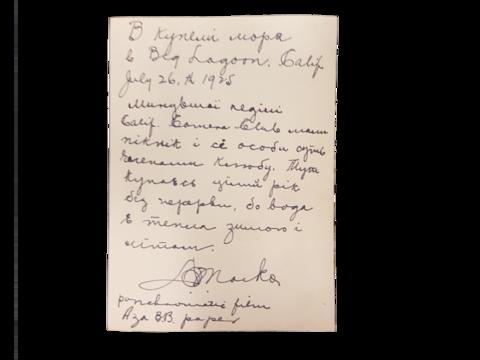 В Купелі моря
в Beg Lagoon. Calif.
July 26. 1925
Минувшої неділі
Calif. Camera Club мали
пікнік і сє особи суть
членами Клюбу. Тут
купаєсь цілий рік
без перерви, бо вода
є тепла зимою і
літом.
panchromatic film
Aza B.B. paper